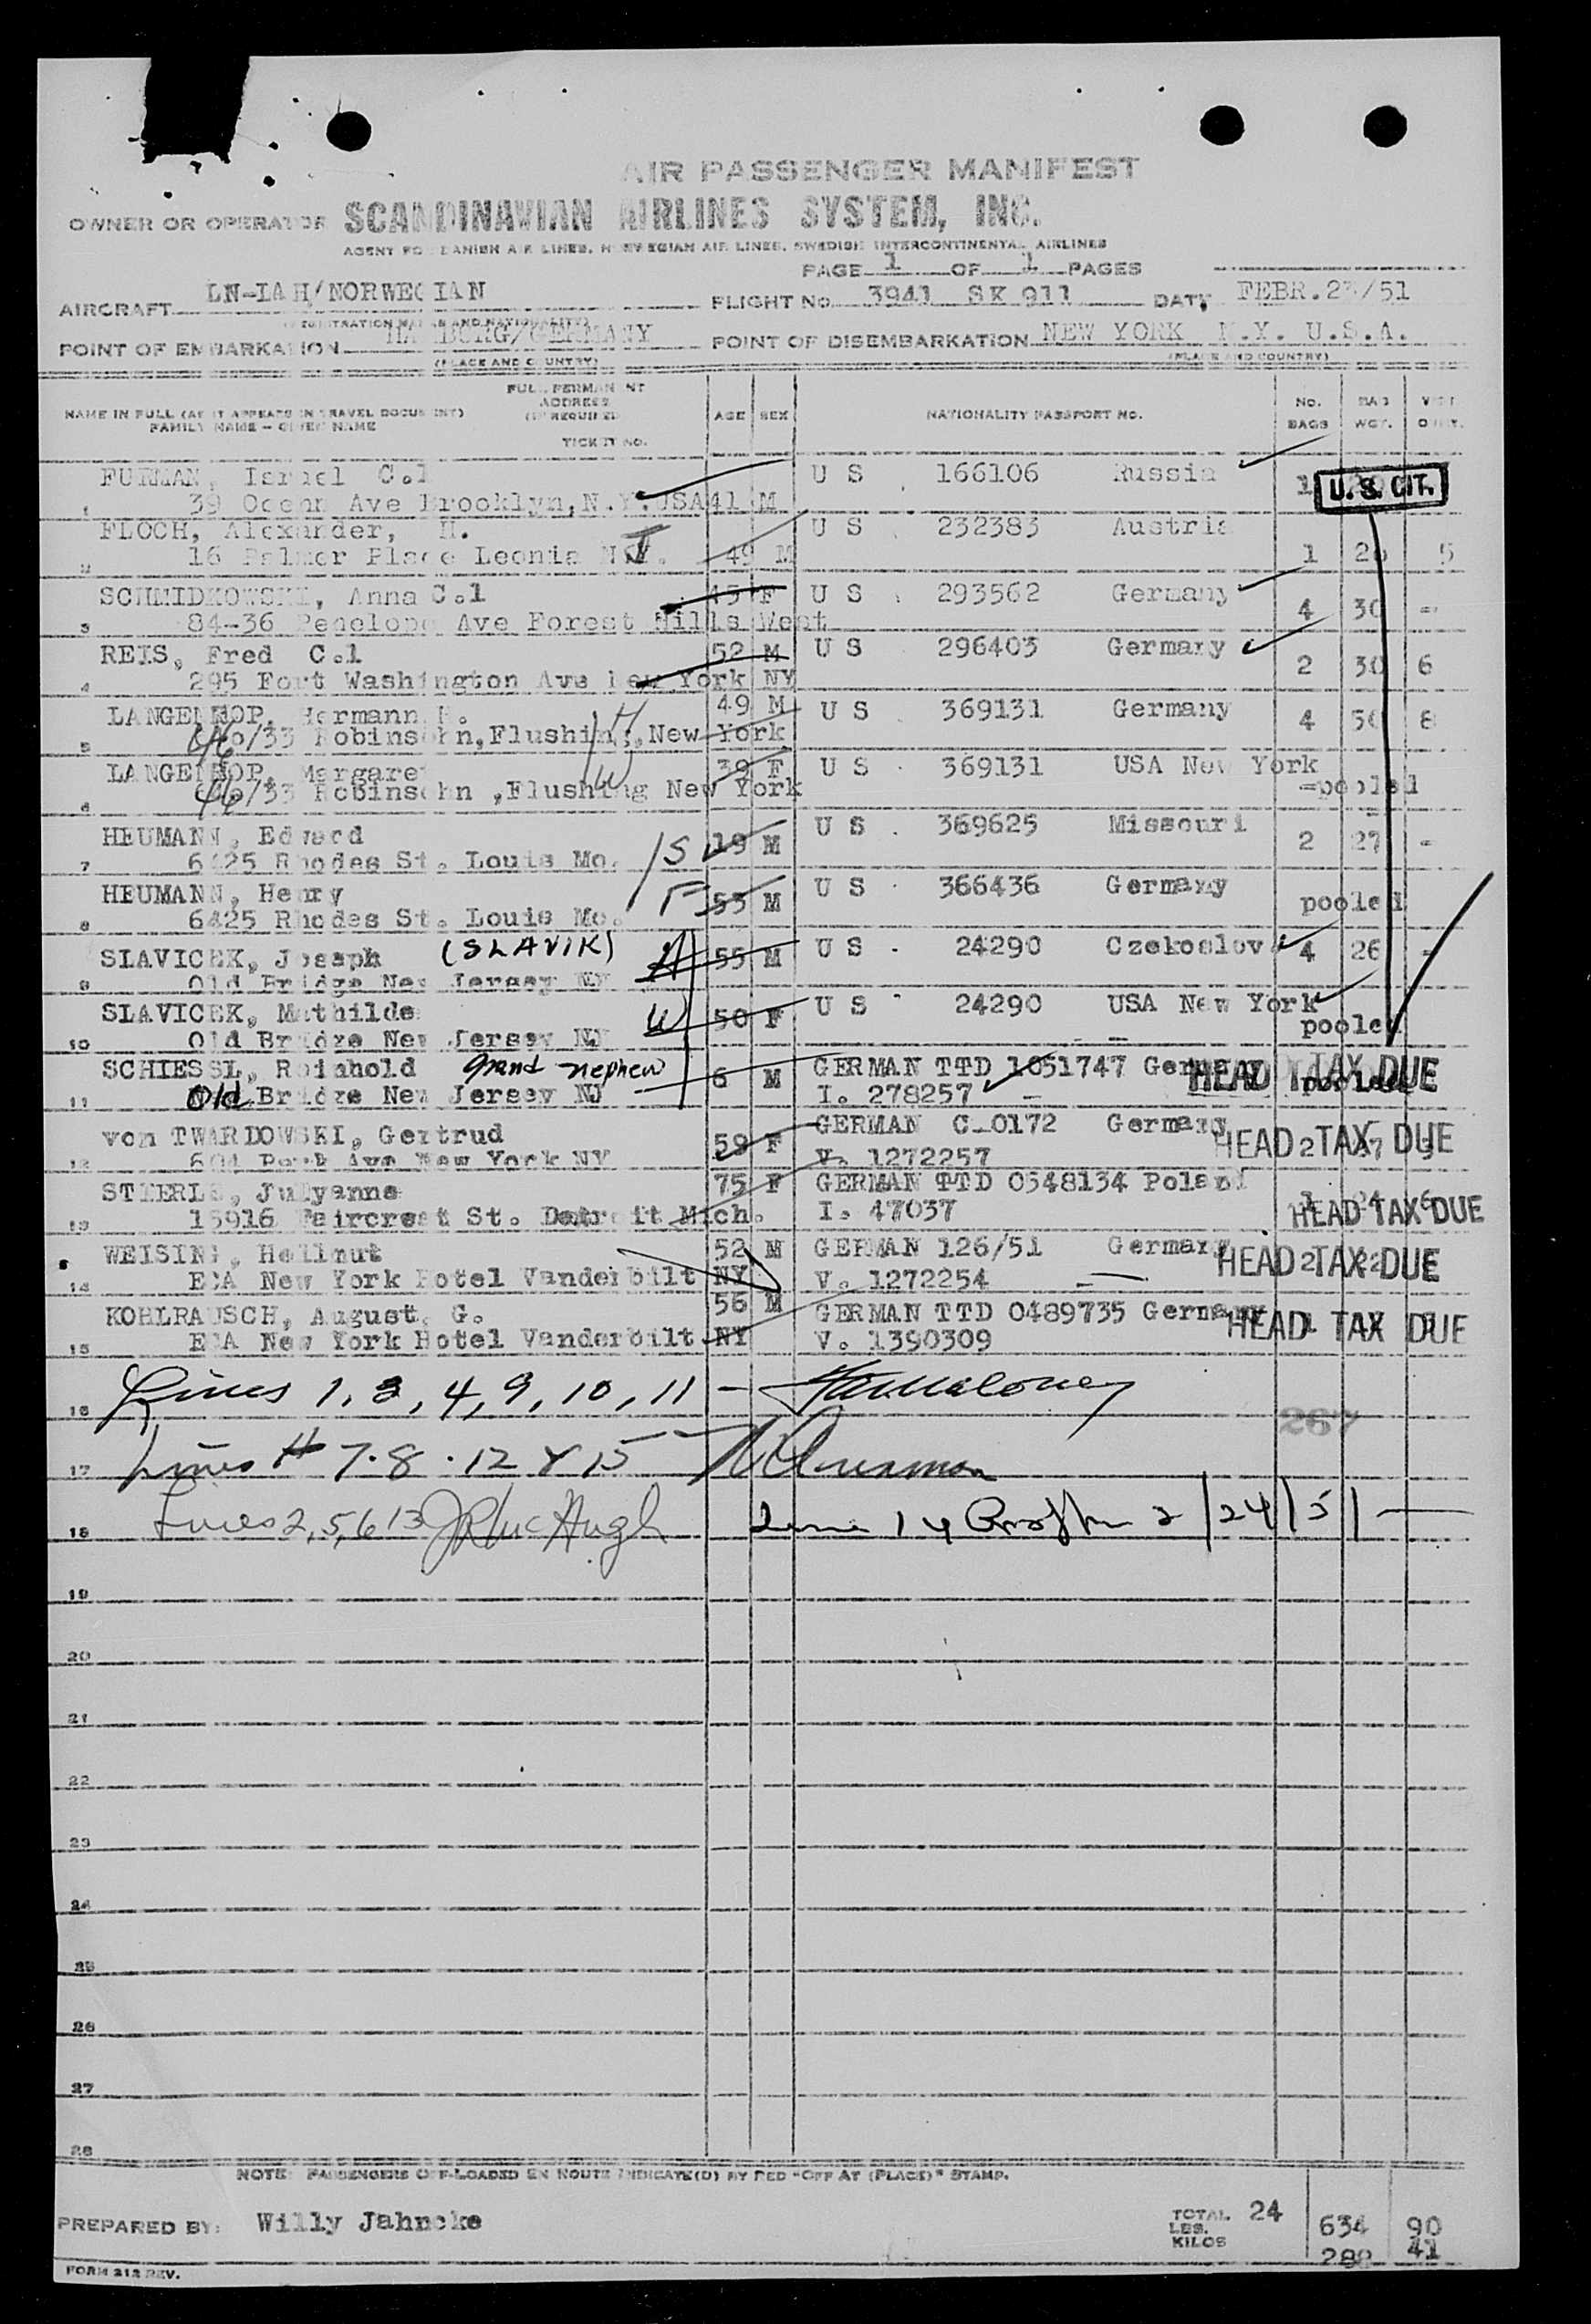 AIR PASSENGER MANIFEST
OWNER OR OPERATOR SCANDINAVIAN AIRLINES SYSTEM, INC.
AGENT FOR DANISH AIR LINES, NORWEGIAN AIR LINES, SWEDISH INTERCONTINENTAL AIRLINES
PAGE 1 OF 1 PAGES
AIRCRAFT LN-IAH/NORWEGIAN FLIGHT No. 3941 SK 911 DATE FEBR.23/51
(REGISTRATION MARKS AND NATIONALITY)
POINT OF EMBARKATION HAMBURG/GERMANY POINT OF DISEMBARKATION NEW YORK N.Y. U.S.A.
(PLACE AND COUNTRY) (PLACE AND COUNTRY)
NAME IN FULL (AS IT APPEARS IN TRAVEL DOCUMENT) FAMILY NAME - GIVEN NAME FULL PERMANENT ADDRESS (IF REQUIRED) TICKET NO. AGE SEX NATIONALITY PASSPORT NO. No. BAGS BAG WGT.
FURMAN, Israel C.l U S 166106 Russia 1 U.S. CIT.
1 39 Ocean Ave Brooklyn,N.Y.USA 41 M
FLOCH, Alexander, H. U S 232383 Austria
2 16 Palmer Place Leonia N.J. 49 M 1 26 5
SCHMIDKOWSKI, Anna C.l 45 F U S 293562 Germany
3 84-36 Penelope Ave Forest Hills West 4 30 -
REIS, Fred C.l 52 M U S 296403 Germany
4 295 Fort Washington Ave New York NY 2 30 6
LANGENHOP, Hermann H. H 49 M U S 369131 Germany 4 50 8
5 46/33 Robinsohn,Flushing,New York
LANGENHOP, Margaret W 39 F U S 369131 USA New York
6 46/33 Robinsohn ,Flushing New York -pooled
HEUMANN, Edward S 19 M U S 369625 Missouri 2 27 -
7 6425 Rhodes St. Louis Mo.
HEUMANN, Henry F 53 M U S 366436 Germany pooled
8 6425 Rhodes St. Louis Mo.
SLAVICEK, Joseph (SLAVIK) H 55 M U S 24290 Czekoslov 4 26 -
9 Old Bridge New Jersey NJ
SLAVICEK, Mathilde W 50 F U S 24290 USA New York
10 Old Bridge New Jersey NJ pooled
SCHIESSL, Reinhold grand nephew 6 M GERMAN TTD 1051747 Germany HEAD TAX DUE pooled
11 Old Bridge New Jersey NJ I. 278257 -
von TWARDOWSKI, Gertrud 59 F GERMAN C 0172 Germany HEAD TAX DUE
12 604 Park Ave New York NY V. 1272257
STIERLE, Julyanne 75 F GERMAN TTD 0548134 Poland
13 15916 Faircrest St. Detroit Mich. I. 47037 HEAD TAX DUE
WEISING, Hellmut 52 M GERMAN 126/51 Germany HEAD TAX DUE
14 ECA New York Hotel Vanderbilt NY V. 1272254
KOHLRAUSCH, August, G. 56 M GERMAN TTD 0489735 Germany HEAD TAX DUE
15 ECA New York Hotel Vanderbilt NY V. 1390309
16 Lines 1, 3, 4, 9, 10, 11 - Maloney
267
17 Lines # 7. 8. 12 & 15
18 Lines 2, 5, 6 13 McHugh Line 14 2/24/51
19
20
21
22
23
24
25
26
27
28
NOTE: PASSENGERS OFF-LOADED EN ROUTE INDICATE(D) BY RED "OFF AT (PLACE)" STAMP.
PREPARED BY: Willy Jahncke
TOTAL 24
LBS. 634 90
KILOS 288 41
FORM 212 REV.